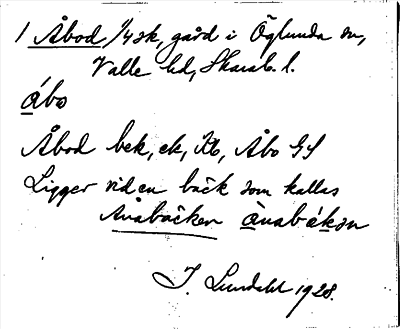 1 Åbod 1/4 sk, gård i Öglunda sn,
Valle hd, Skarab. l.
åbo
Åbod bek, ek, Kb, Åbo GS
Ligger vid en bäck som kallas
Ånabäcken ånabäkən
J. Lundahl 1928.